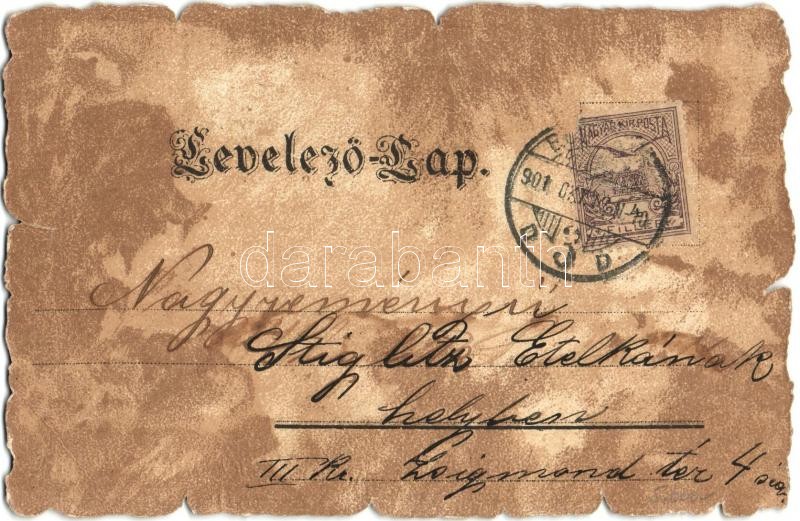 Levelező-Lap.
MAGYAR KIR. POSTA
FILLÉR
901
darabanth
Nagyreményü
Stiglitz Etelkának
helyben
III Kr. Zsigmond tér 4 sz.